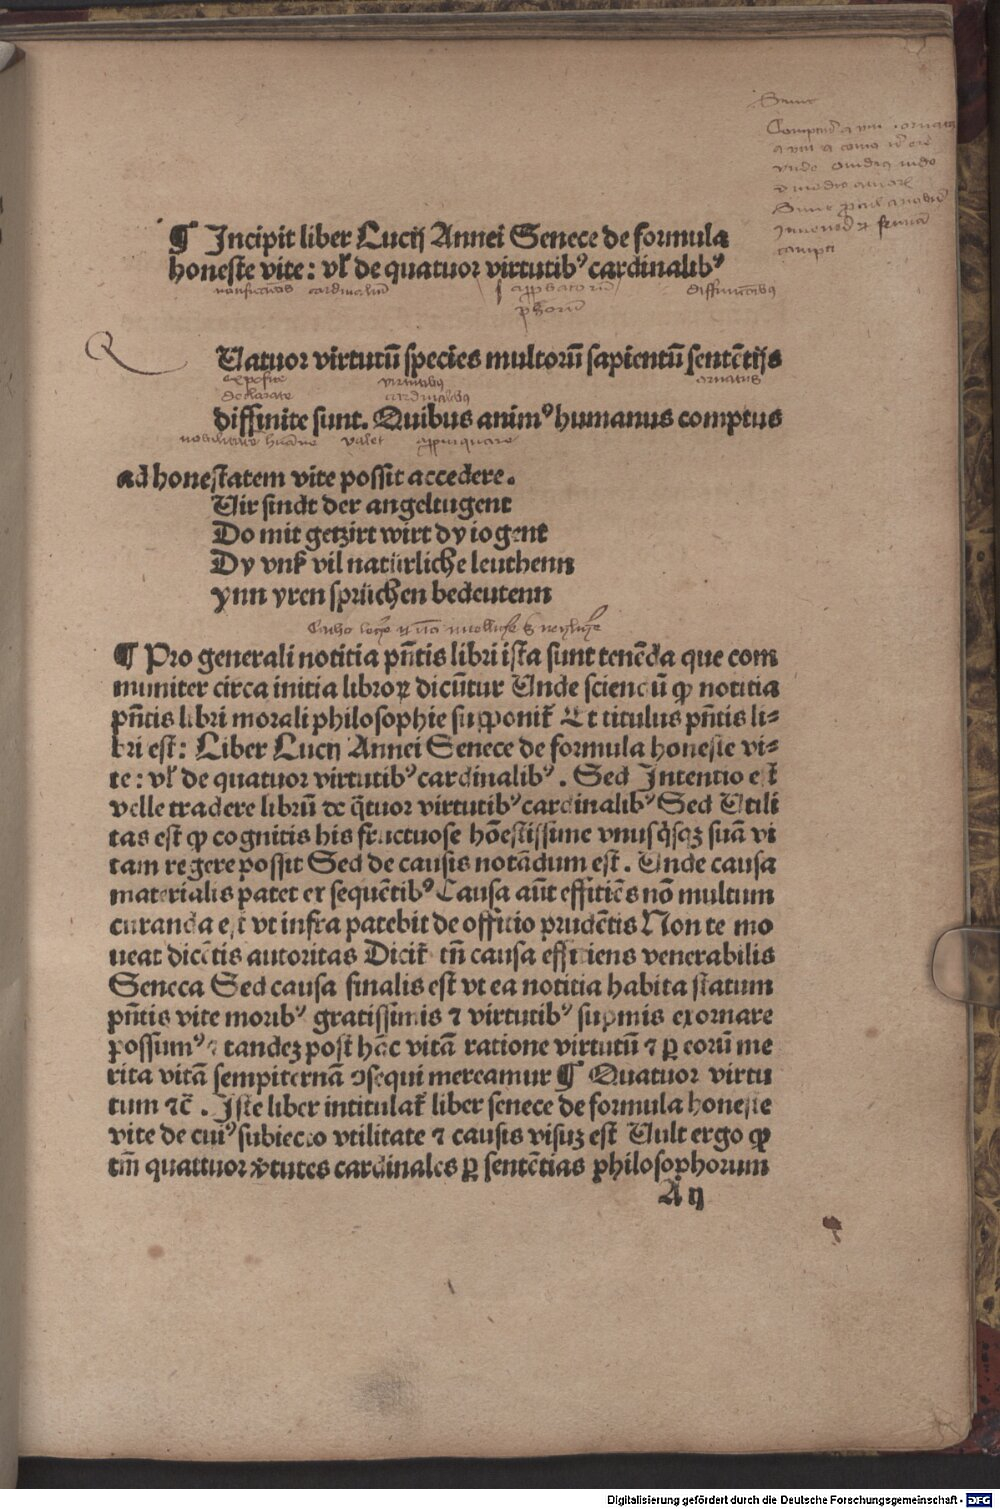 ¶ Incipit liber Lucij Annei Senece de formula
honeste vite: vl̕ de quatuor virtutibꝰ cardinalibꝰ
diffinicionibus
philosophorum
Q
Uatuor virtutū species multorū sapientū sentētijs
exposite virtutibus ornatus
declarate cardinalibus
diffinite sunt. Quibus animꝰ humanus comptus
valet appropinquare
ad honestatem vite possit accedere.
Uir sindt der angeltugent
Do mit getzirt wirt dy iogent
Dy vnß vil natürliche leuthenn
ynn yren sprüchen bedeutenn
¶ Pro generali notitia pn̄tis libri ista sunt tenēda que com
muniter circa initia libroꝝ dicūtur Unde sciendū ꝙ notitia
pn̄tis libri morali philosophie supponit̕ Et titulus pn̄tis li⸗
bri est: Liber Lucij Annei Senece de formula honeste vi⸗
te: vl̕ de quatuor virtutibꝰ cardinalibꝰ. Sed Intentio est
velle tradere librū de q̄tuor virtutibꝰ cardinalibꝰ Sed Utili
tas est ꝙ cognitis his fructuose hōestissime vnusq̄sqꝫ suā vi
tam regere possit Sed de causis notādum est. Unde causa
materialis patet ex sequētibꝰ Causa aūt effitiēs nō multum
curanda est vt infra patebit de offitio prudētis Non te mo
ueat dicētis autoritas Dicit̕ tn̄ causa effitiens venerabilis
Seneca Sed causa finalis est vt ea notitia habita statum
pn̄tis vite moribꝰ gratissimis ⁊ virtutibꝰ sup̱mis exornare
possumꝰ ⁊ tandeꝫ post hāc vitā ratione virtutū ⁊ ꝑ eorū me
rita vitā sempiternā ↄsequi mereamur ¶ Quatuor virtu
tum ⁊c̄. Iste liber intitulat̕ liber senece de formula honeste
vite de cuiꝰ subiecto vtilitate ⁊ causis visuꝫ est Uult ergo ꝙ
tm̄ quattuor v̕tutes cardinales ꝑ sentētias philosophorum
A ij
Digitalisierung gefördert durch die Deutsche Forschungsgemeinschaft - DFG